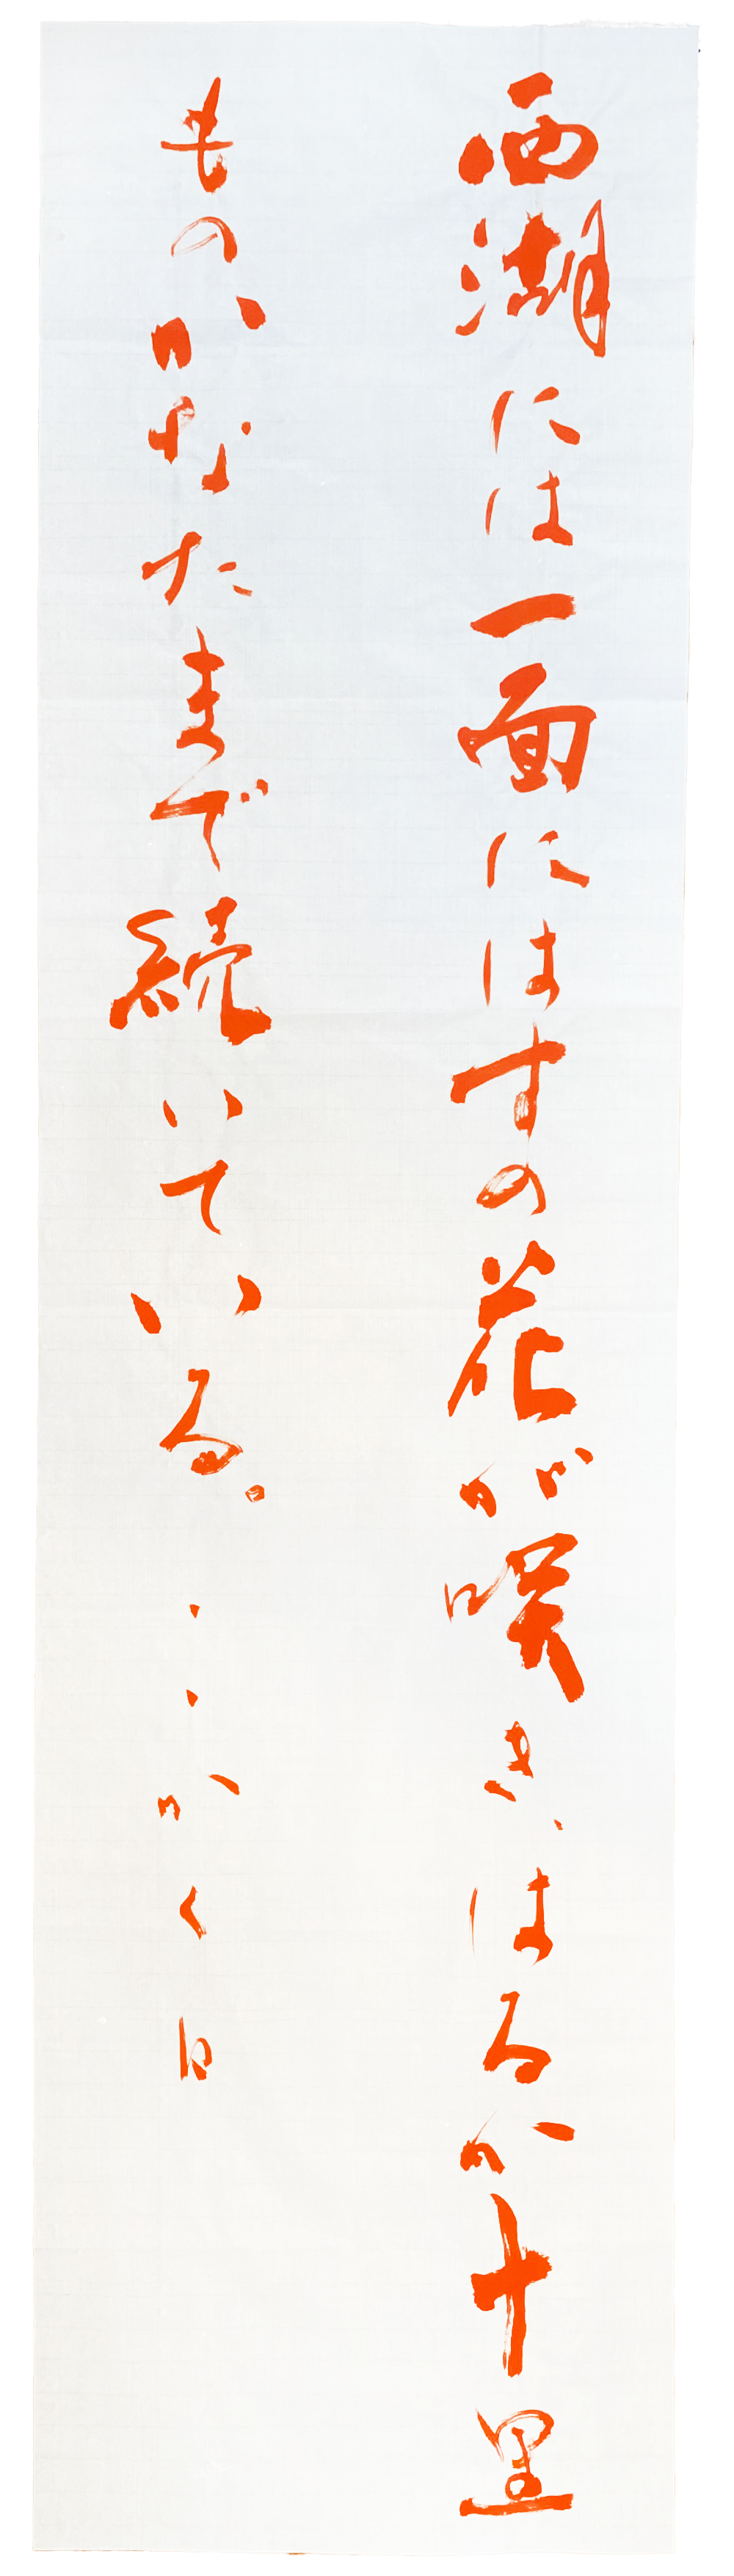 西湖には一面にはすの花が咲き、はるか十里
ものかなたまで続いている。 かく